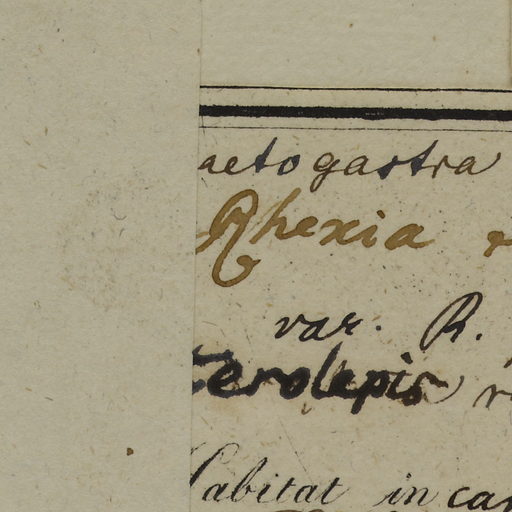 aetogastra
Rhexia
var. R.
terolepis
Habitat in cap